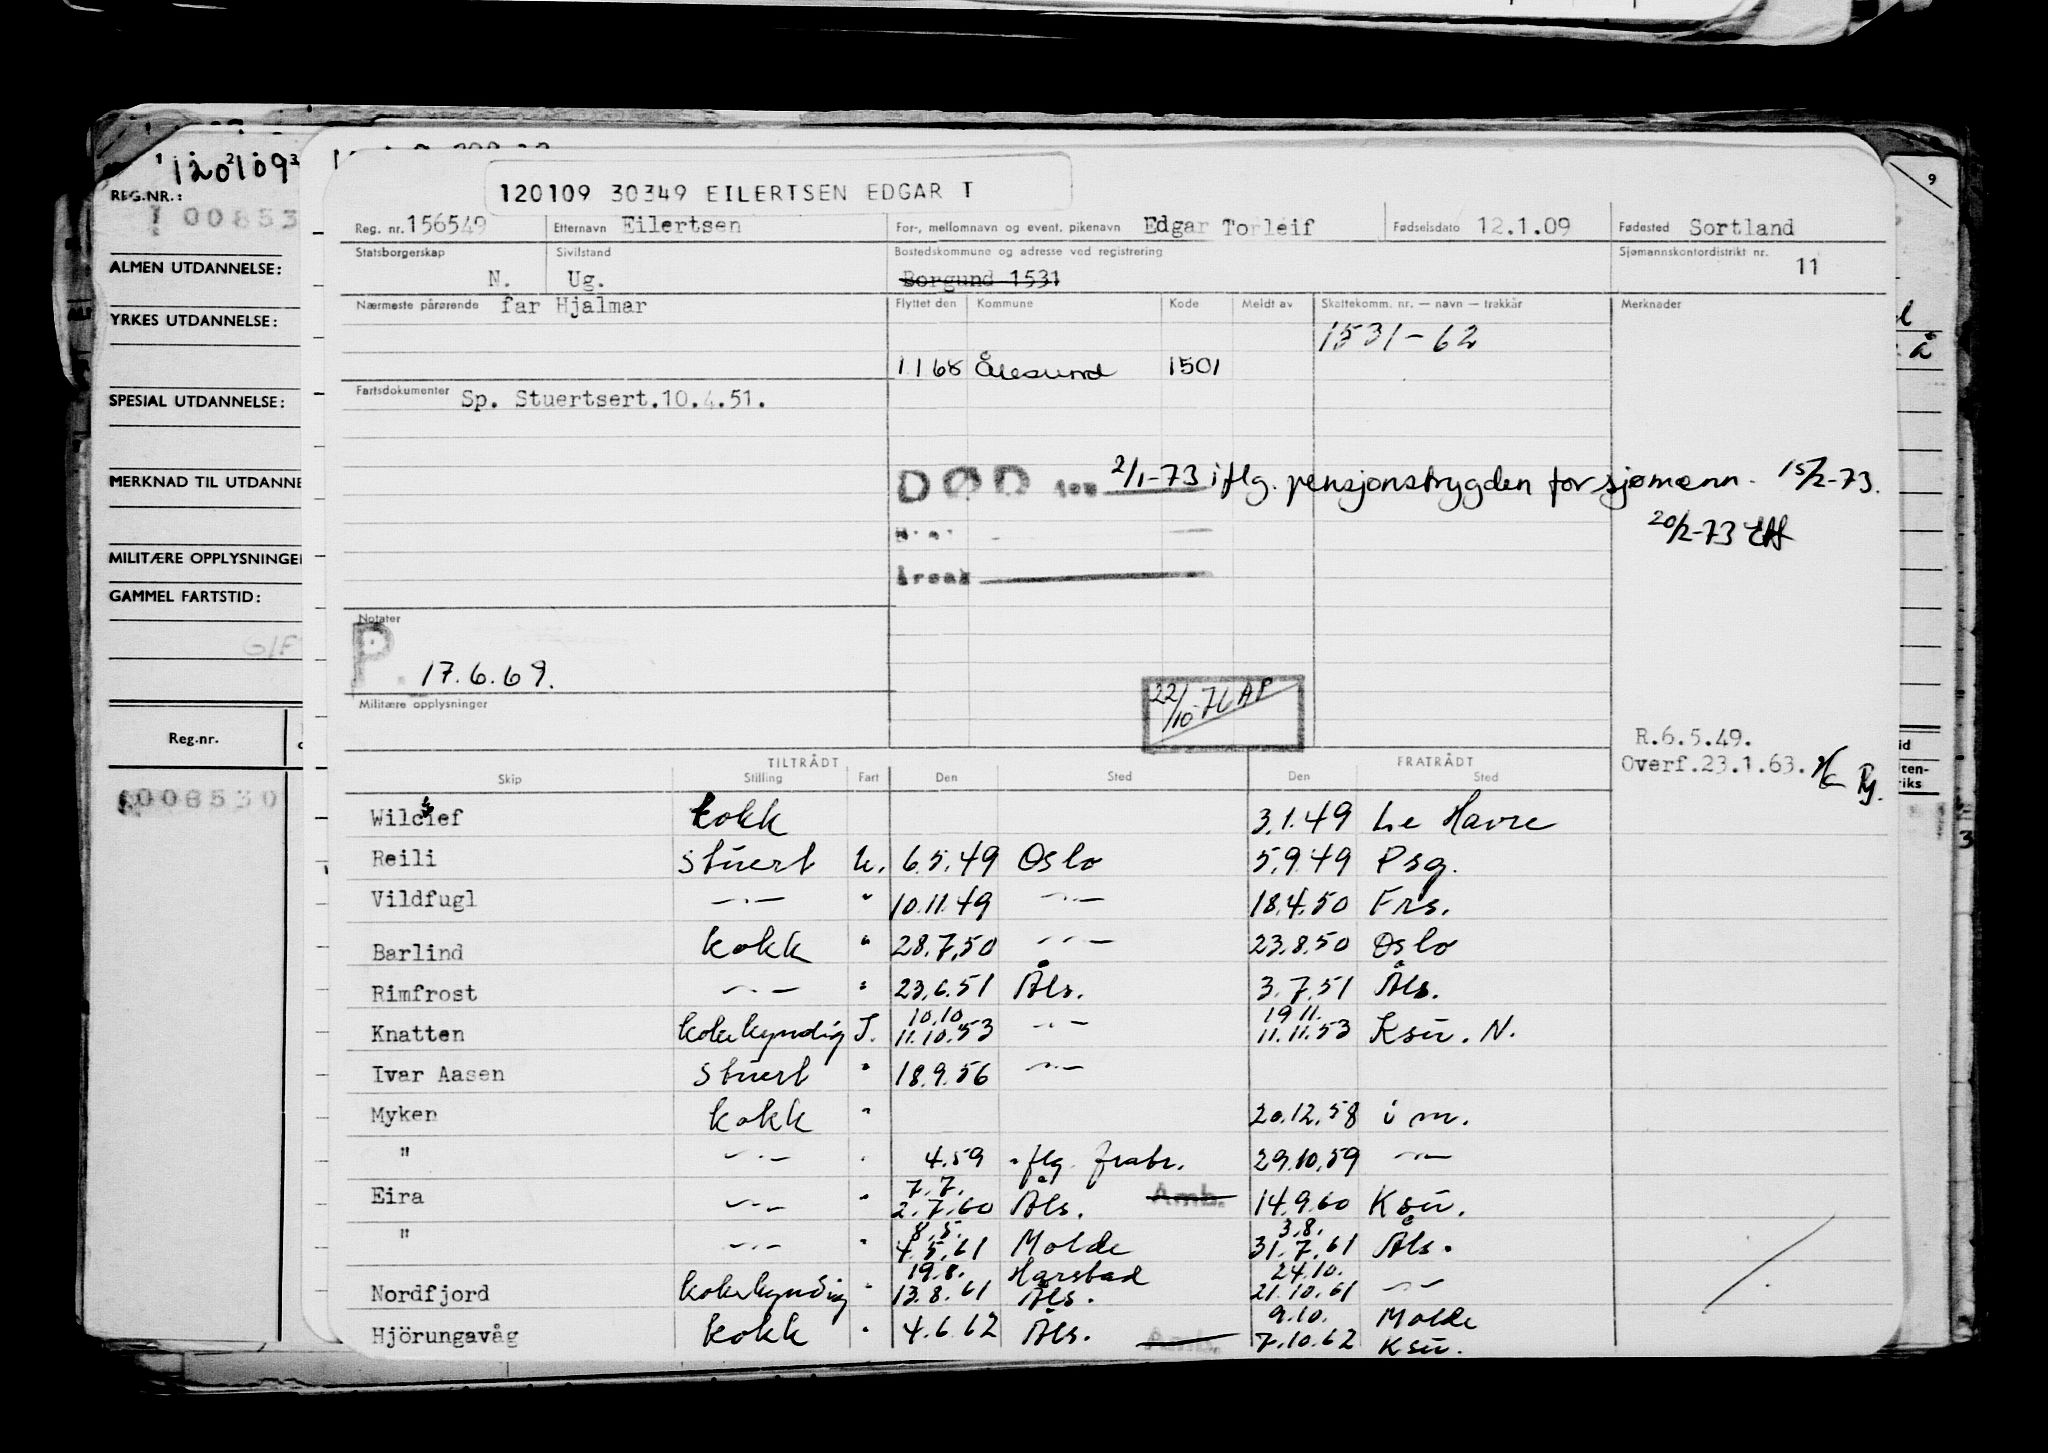 120109
REG.NR.:
100853
ALMEN UTDANNELSE:
YRKES UTDANNELSE:
SPESIAL UTDANNELSE:
MERKNAD TIL UTDANNE
MILITÆRE OPPLYSNINGE
GAMMEL FARTSTID:
G/F
Reg.nr.
1008530
9
120109 30349 EILERTSEN EDGAR T
Reg. nr. 156549 Etternavn Eilertsen For-, mellomnavn og event. pikenavn Edgar Torleif Fødselsdato 12.1.09 Fødested Sortland
Statsborgerskap N. Sivilstand Ug. Bostedskommune og adresse ved registrering Borgund 1531 Sjømannskontordistrikt nr. 11
Nærmeste pårørende far Hjalmar Flyttet den Kommune Kode Meldt av Skattekomm. nr. — navn — trekkår Merknader
1531-62
1168 Ålesund 1501
Fartsdokumenter Sp. Stuertsert.10.4.51.
DØD den 2/1-73 iflg. pensjonstrygden for sjømenn. 15/2-73.
20/2-73
Årsak
Notater
P. 17.6.69.
22/10-71 AP
Militære opplysninger
R.6.5.49.
Overf.23.1.63.
TILTRÅDT FRATRÅDT
Skip Stilling Fart Den Sted Den Sted
Wilchief kokk 3.1.49 Le Havre
Reili Stuert U. 6.5.49 Oslo 5.9.49 Psg.
Vildfugl —.— " 10.11.49 —.— 18.4.50 Frs.
Barlind kokk " 28.7.50 —.— 23.8.50 Oslo
Rimfrost —.— " 23.6.51 Åls. 3.7.51 Åls.
10.10. 19.11.
Knatten kokkyndig I. 11.10.53 —.— 11.11.53 Ksu. N.
Ivar Aasen Stuert " 18.9.56 —.—
Myken kokk " 20.12.58 i m.
" —.— " 4.59 iflg. fratr. 29.10.59 —.—
7.7.
Eira —.— " 2.7.60 Åls. Amb. 14.9.60 Ksu.
8.5. 3.8.
" —.— " 4.5.61 Molde 31.7.61 Åls.
19.8. Harstad 24.10.
Nordfjord kokkyndig " 13.8.61 Åls. 21.10.61 —.—
9.10. Molde
Hjörungavåg kokk " 4.6.62 Åls. 7.10.62 Ksu.